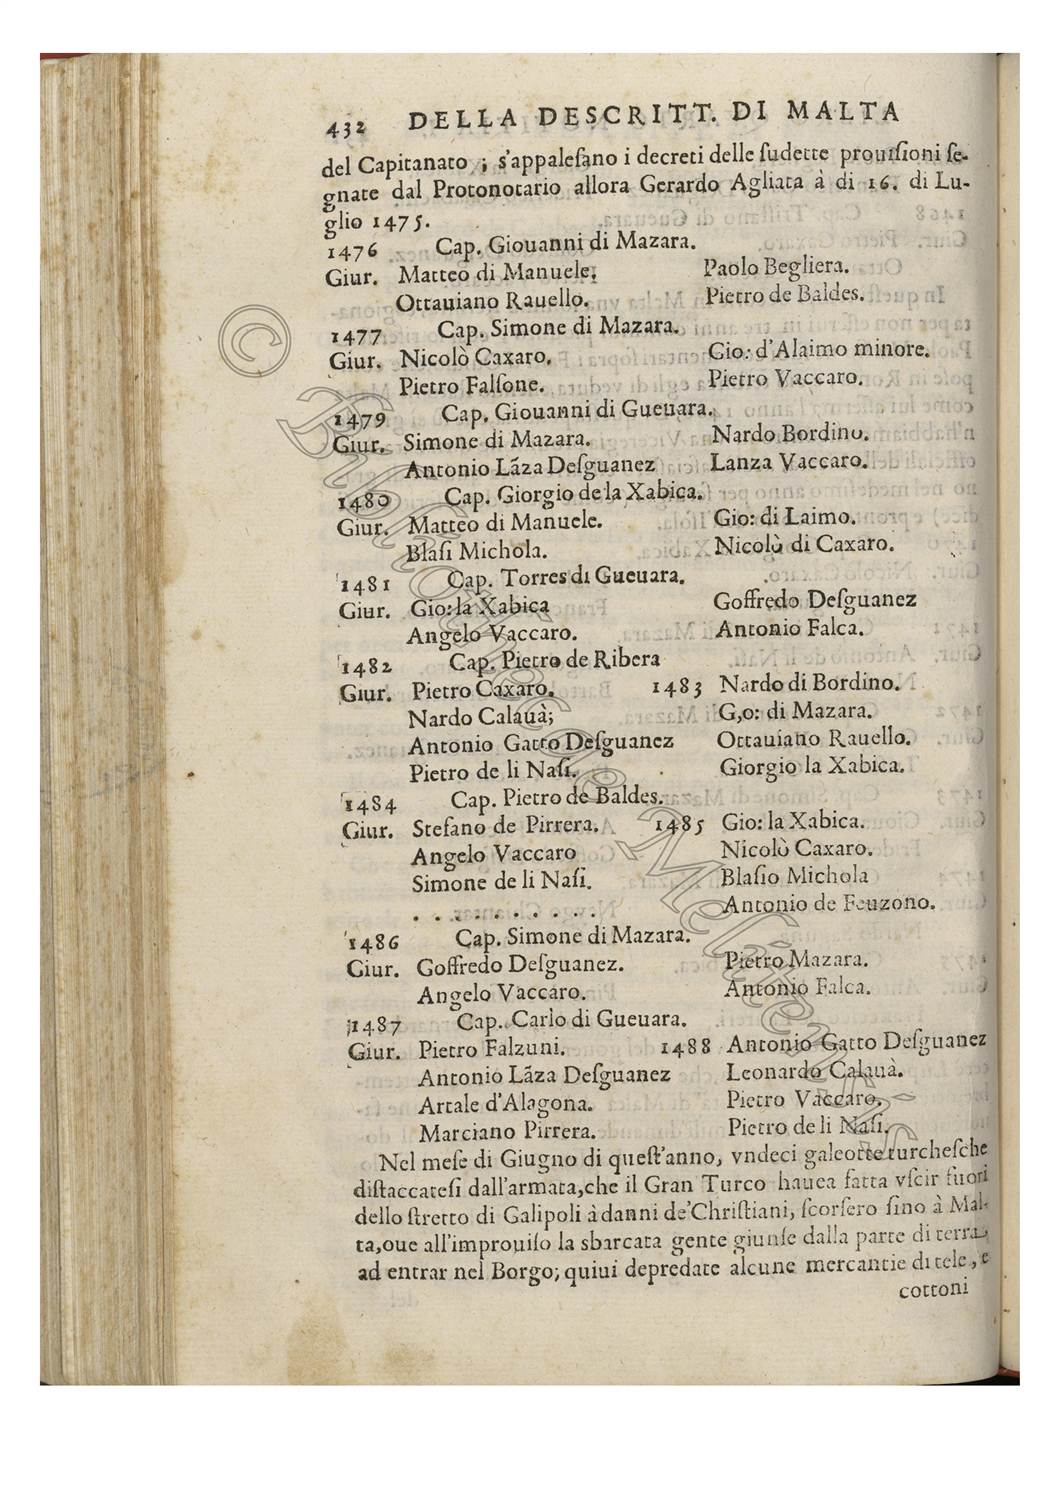 432 DELLA DESCRITT. DI MALTA
del Capitanato, ; s'appaleſano i decreti delle ſudette prouiſioni ſe-
gnate dal Protonotario allora Gerardo Agliata à di 16. di Lu-
glio 1475.
1476 Cap. Giouanni di Mazara.
Giur. Matteo di Manuele. Paolo Begliera.
Ottauiano Rauello. Pietro de Baldes.
1477 Cap. Simone di Mazara.
Giur. Nicolò Caxaro. Gio: d'Alaimo minore.
Pietro Falſone. Pietro Vaccaro.
1479 Cap. Giouanni di Gueuara.
Giur. Simone di Mazara. Nardo Bordino.
Antonio Lãza Deſguanez Lanza Vaccaro.
1480 Cap. Giorgio de la Xabica.
Giur. Matteo di Manuele. Gio: di Laimo.
Blaſi Michola. Nicolò di Caxaro.
1481 Cap. Torres di Gueuara.
Giur. Gio: la Xabica Goffredo Deſguanez
Angelo Vaccaro. Antonio Falca.
1482 Cap. Pietro de Ribera
Giur. Pietro Caxaro. 1483 Nardo di Bordino.
Nardo Calauà; G,o: di Mazara.
Antonio Gatto Deſguanez Ottauiano Rauello.
Pietro de li Naſi. Giorgio la Xabica.
1484 Cap. Pietro de Baldes.
Giur. Stefano de Pirrera. 1485 Gio: la Xabica.
Angelo Vaccaro Nicolò Caxaro.
Simone de li Naſi. Blaſio Michola
. . . . . . . . . . Antonio de Feuzono.
1486 Cap. Simone di Mazara.
Giur. Goffredo Deſguanez. Pietro Mazara.
Angelo Vaccaro. Antonio Falca.
1487 Cap. Carlo di Gueuara.
Giur. Pietro Falzuni. 1488 Antonio Gatto Deſguanez
Antonio Lãza Deſguanez Leonardo Calauà.
Artale d'Alagona. Pietro Vaccaro.
Marciano Pirrera. Pietro de li Naſi.
Nel meſe di Giugno di queſt'anno, vndeci galeotte turcheſche
diſtaccateſi dall'armata,che il Gran Turco hauea fatta vſcir fuori
dello ſtretto di Galipoli à danni de'Chriſtiani, ſcorſero ſino à Mal-
ta,oue all'improuiſo la sbarcata gente giunſe dalla parte di terra,
ad entrar nel Borgo; quiui depredate alcune mercantie di tele, e
cottoni
© Bibliotheca Melitensis